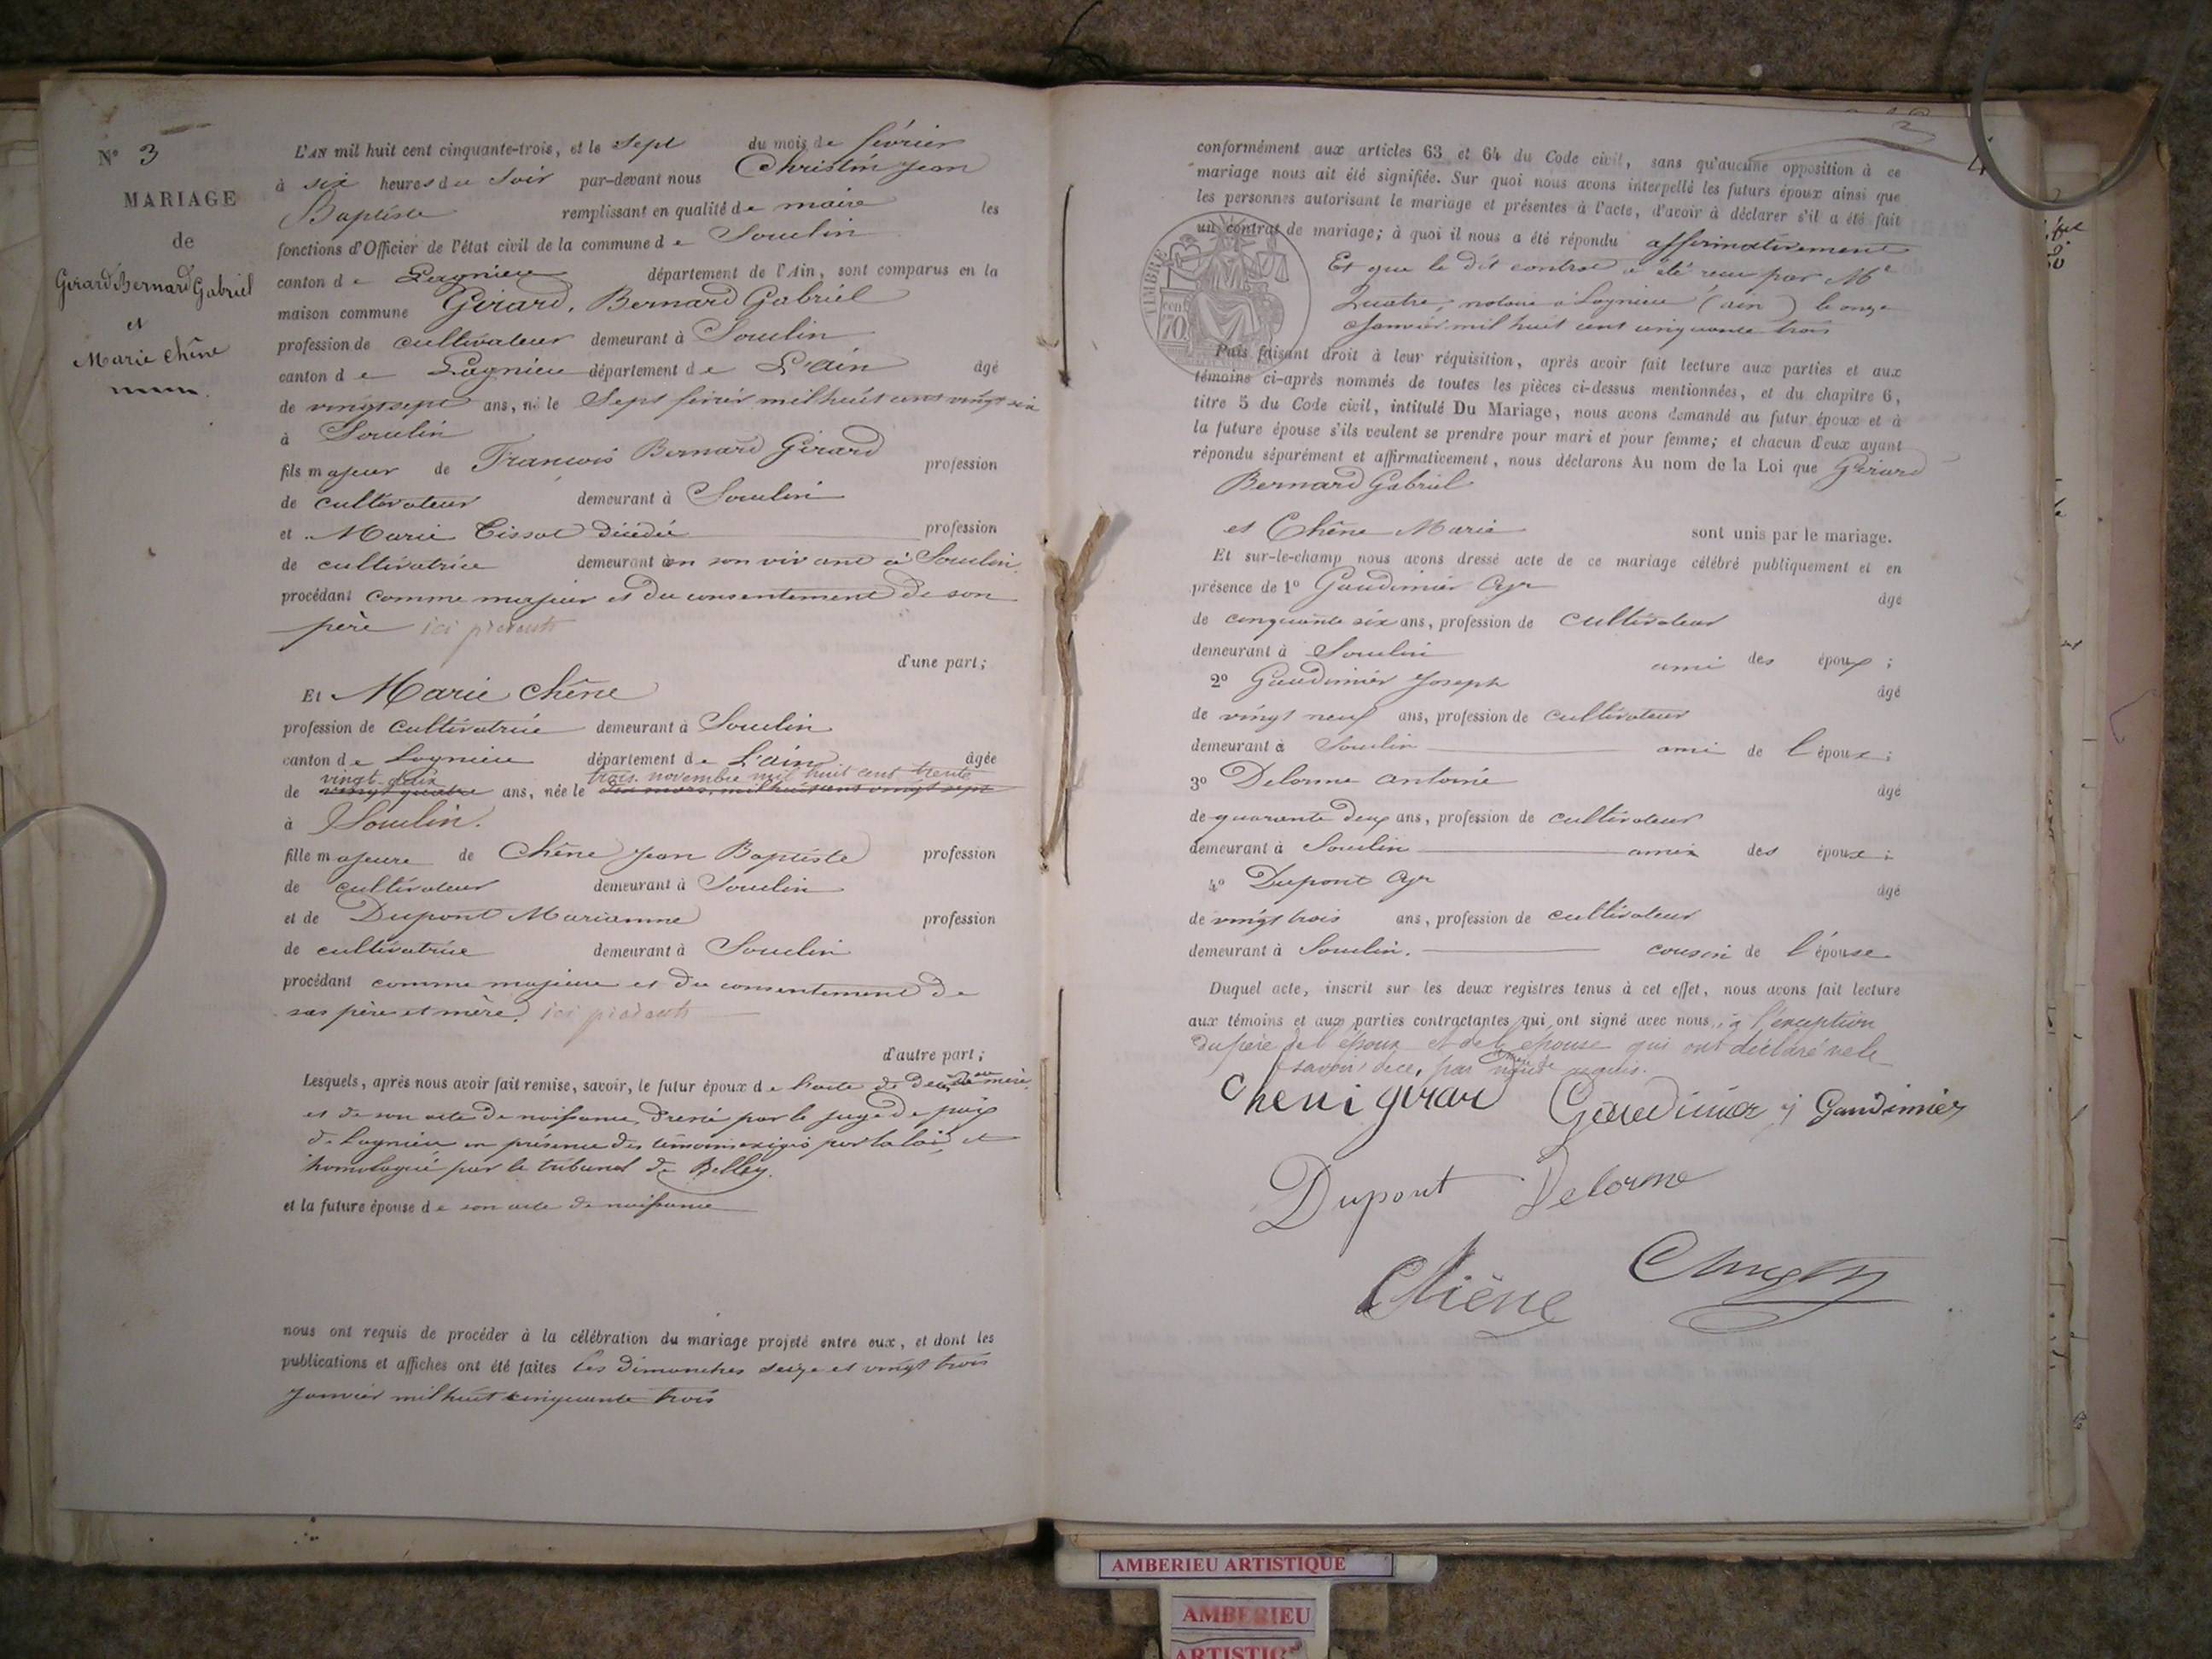 N° 3
MARIAGE
de
Girard Bernard Gabriel
et
Marie Chêne
L'AN mil huit cent cinquante-trois, et le Sept du mois de février
à six heures du Soir par-devant nous Christin Jean
Baptiste remplissant en qualité de maire les
fonctions d'Officier de l'état civil de la commune de Souclin
canton de Lagnieu département de l'Ain, sont comparus en la
maison commune Girard, Bernard Gabriel
profession de cultivateur demeurant à Souclin
canton de Lagnieu département de L'ain âgé
de vingt sept ans, né le Sept février mil huit cent vingt six
à Souclin
fils majeur de François Bernard Girard profession
de cultivateur demeurant à Souclin
et Marie Tissot décédée profession
de cultivatrice demeurant en son vivant à Souclin
procédant comme majeur et du consentement de son
père ici présents
d'une part;
Et Marie Chêne
profession de cultivatrice demeurant à Souclin
canton de Lagnieu département de L'ain âgée
vingt deux trois novembre mil huit cent trente
de vingt quatre ans, née le dix mars mil huit cent vingt sept
à Souclin.
fille majeure de Chêne Jean Baptiste profession
de cultivateur demeurant à Souclin
et de Dupont Marianne profession
de cultivatrice demeurant à Souclin
procédant comme majeure et du consentement de
ses père et mère ici présents
d'autre part;
Lesquels, après nous avoir fait remise, savoir, le futur époux de l'acte de décès de sa mère
et de son acte de naissance, dressé par le juge de paix
de Lagnieu en présence des témoins exigés par la loi, et
homologué par le tribunal de Belley.
et la future épouse de son acte de naissance
nous ont requis de procéder à la célébration du mariage projeté entre eux, et dont les
publications et affiches ont été faites les dimanches seize et vingt trois
Janvier mil huit cinquante trois
conformément aux articles 63 et 64 du Code civil, sans qu'aucune opposition à ce
mariage nous ait été signifiée. Sur quoi nous avons interpellé les futurs époux ainsi que
les personnes autorisant le mariage et présentes à l'acte, d'avoir à déclarer s'il a été fait
un contrat de mariage; à quoi il nous a été répondu affirmativement
Et que le dit contrat a été reçu par Me
Quatre, notaire à Lagnieu (ain) le onze
Janvier mil huit cent cinquante trois
TIMBRE
70
Puis faisant droit à leur réquisition, après avoir fait lecture aux parties et aux
témoins ci-après nommés de toutes les pièces ci-dessus mentionnées, et du chapitre 6,
titre 5 du Code civil, intitulé Du Mariage, nous avons demandé au futur époux et à
la future épouse s'ils veulent se prendre pour mari et pour femme; et chacun d'eux ayant
répondu séparément et affirmativement, nous déclarons Au nom de la Loi que Girard
Bernard Gabriel
et Chêne Marie sont unis par le mariage.
Et sur-le-champ nous avons dressé acte de ce mariage célébré publiquement et en
présence de 1° Gaudimier Cyr âgé
de cinquante six ans, profession de cultivateur
demeurant à Souclin ami des époux;
2° Gaudimier Joseph âgé
de vingt neuf ans, profession de cultivateur
demeurant à Souclin ami de l'époux;
3° Delorme Antoine âgé
de quarante deux ans, profession de cultivateur
demeurant à Souclin ami des époux;
4° Dupont Cyr âgé
de vingt trois ans, profession de cultivateur
demeurant à Souclin. cousin de l'épouse
Duquel acte, inscrit sur les deux registres tenus à cet effet, nous avons fait lecture
aux témoins et aux parties contractantes qui ont signé avec nous, à l'exception
du père de l'époux et de l'épouse qui ont déclaré ne le
savoir requis.
girar Gaudimier j Gaudimier
Dupont Delorme
Chêne Christin
AMBERIEU ARTISTIQUE
AMBERIEU
ARTISTIQ